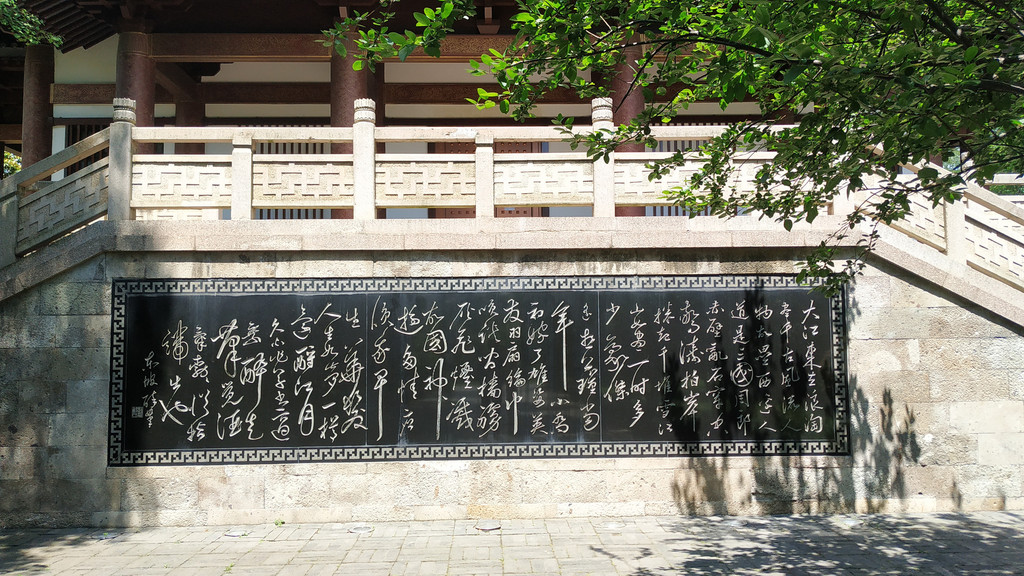 大江東去浪淘
盡千古風流人
物故壘西邊人
道是三國周郎
赤壁亂石穿空
驚濤拍岸
捲起千堆雪江
山如畫一時多
少豪傑
遙想公瑾當
年小喬
初嫁了雄姿英
發羽扇綸巾
笑談間檣艣
灰飛煙滅
故國神
遊多情應
我早
生華髮
人生如夢一樽
還酹江月
久不作草書適
乘醉走
筆覺酒
氣勃勃似指
端出也
東坡醉筆